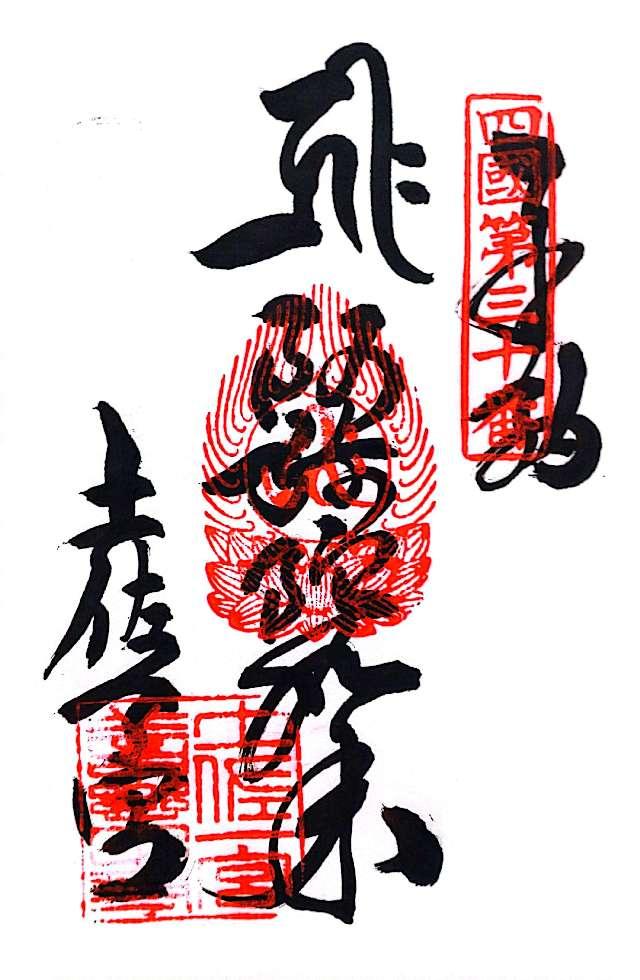 四國第三十番
奉納
阿弥陀如来
土佐一宮
土佐一宮
善樂寺